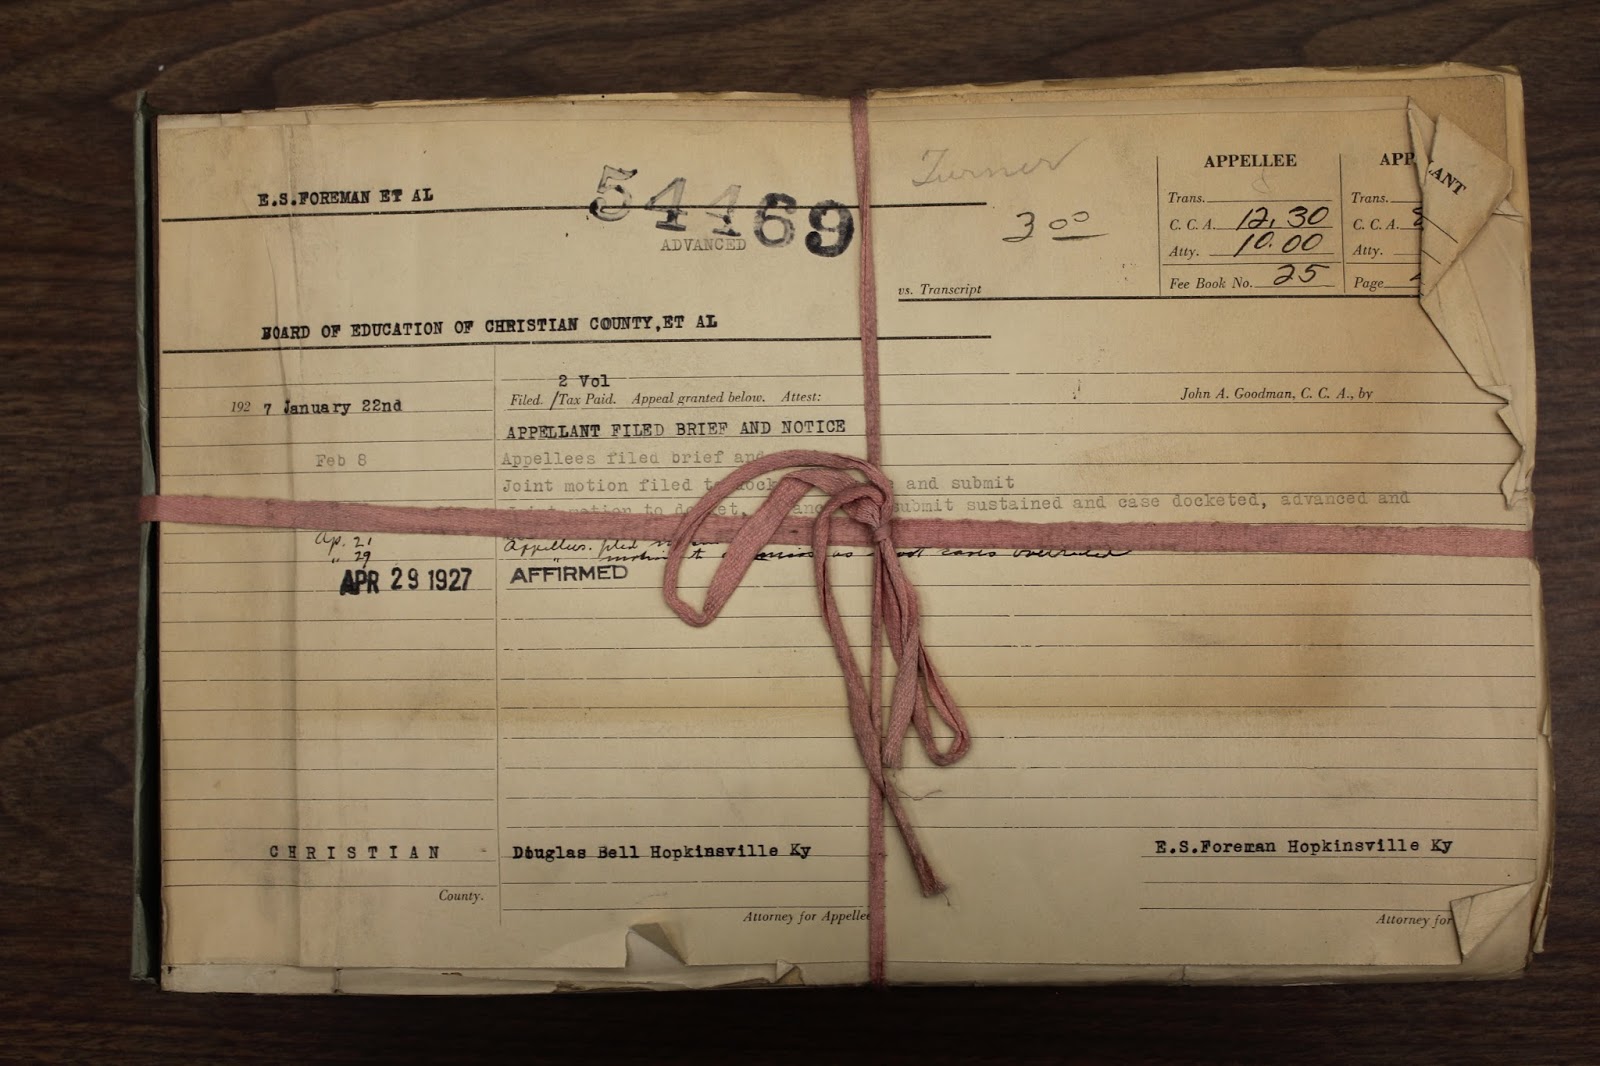 E.S.FOREMAN ET AL
54469
ADVANCED
Turner
3 00
vs. Transcript
APPELLEE
Trans.
C. C. A. 12.30
Atty. 10.00
Fee Book No. 25
APP ANT
Trans.
C. C. A.
Atty.
Page
BOARD OF EDUCATION OF CHRISTIAN COUNTY,ET AL
2 Vol
192 7 January 22nd Filed. /Tax Paid. Appeal granted below. Attest: John A. Goodman, C. C. A., by
APPELLANT FILED BRIEF AND NOTICE
Feb 8 Appellees filed brief and
Joint motion filed to and submit
Joint motion to submit sustained and case docketed, advanced and
Ap. 21 Appellees filed
" 29 " motion to dismiss as moot cases overruled
APR 29 1927 AFFIRMED
CHRISTIAN Douglas Bell Hopkinsville Ky E.S.Foreman Hopkinsville Ky
County.
Attorney for Appellee Attorney for